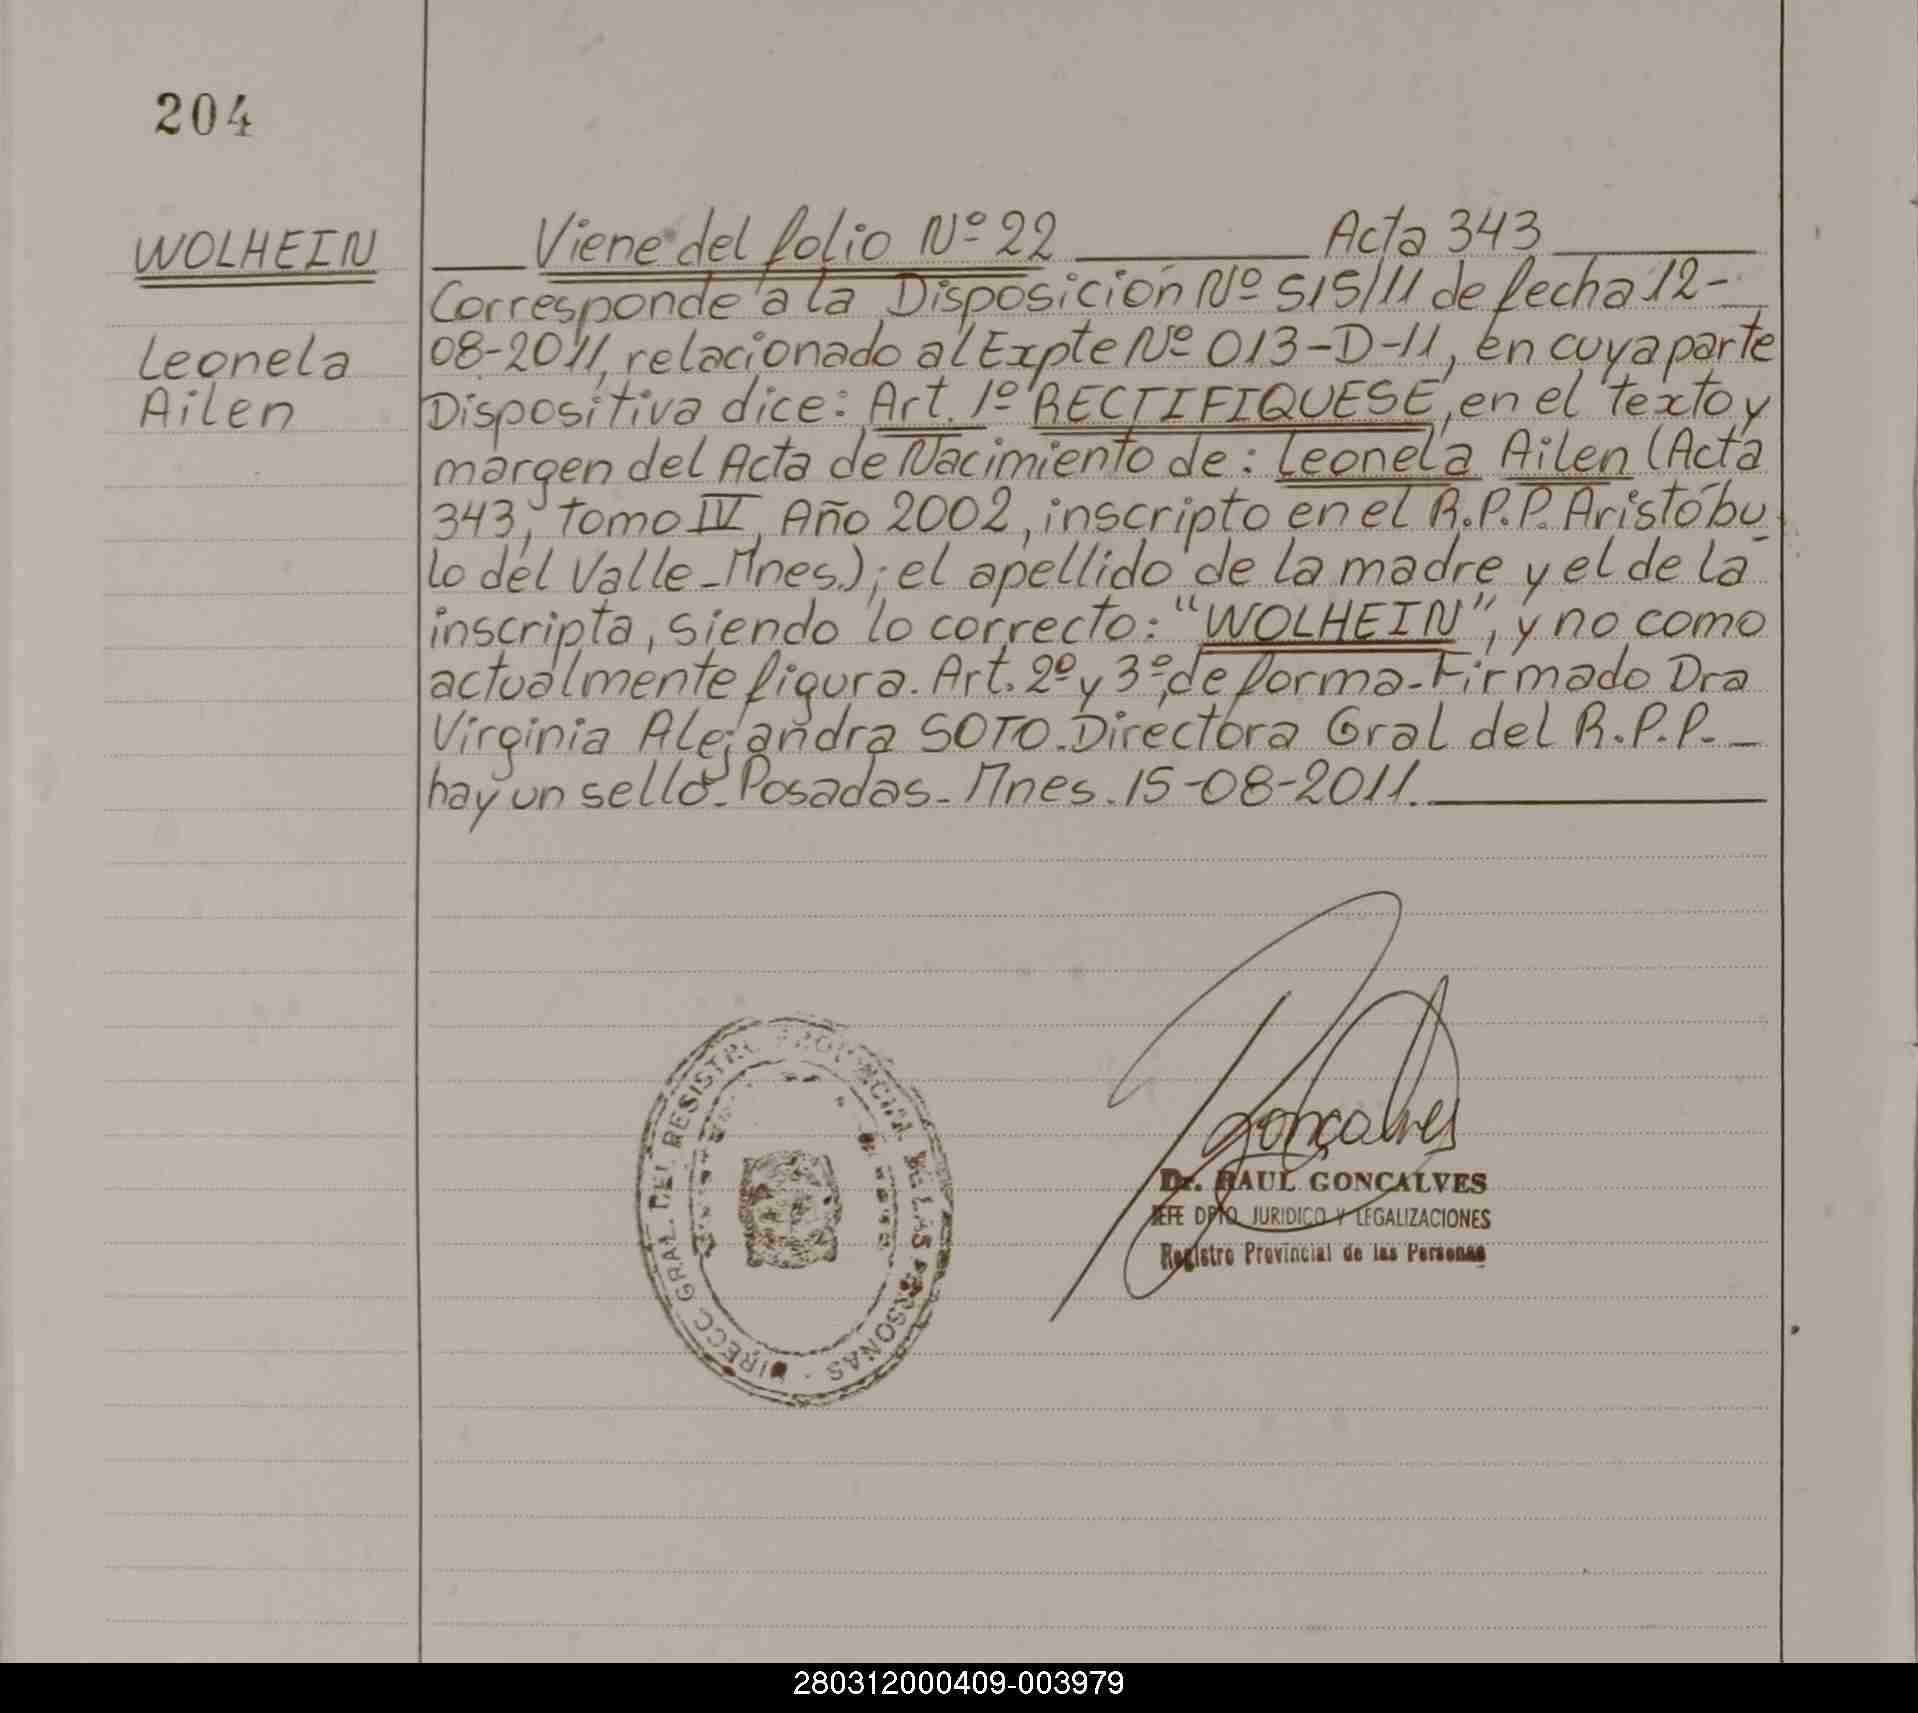 204
WOLHEIN
Leonela
Ailen
Viene del folio Nº 22 Acta 343
Corresponde a la Disposición Nº 515/11 de fecha 12-
08-2011, relacionado al Expte Nº 013-D-11, en cuya parte
Dispositiva dice: Art. 1º RECTIFIQUESE, en el texto y
margen del Acta de Nacimiento de: Leonela Ailen (Acta
343, Tomo IV, Año 2002, inscripto en el R.P.P. Aristóbu-
lo del Valle-Mnes.); el apellido de la madre y el de la
inscripta, siendo lo correcto: "WOLHEIN", y no como
actualmente figura. Art. 2º y 3º, de forma-Firmado Dra
Virginia Alejandra SOTO. Directora Gral del R.P.P.-
hay un sello-Posadas-Mnes. 15-08-2011.
DIRECC GRAL DEL REGISTRO PROVINCIAL DE LAS PERSONAS
Gonçalves
Dr. RAUL GONCALVES
JEFE DPTO JURIDICO Y LEGALIZACIONES
Registro Provincial de las Personas
280312000409-003979